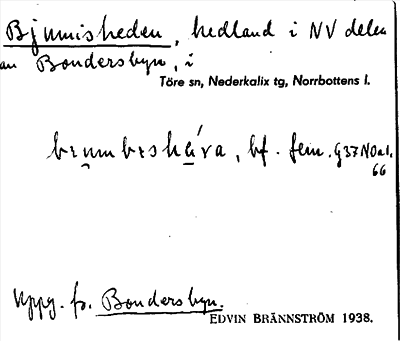 Bjumisheden, hedland i NV delen
av Bondersbyn, i
Töre sn, Nederkalix tg, Norrbottens l.
bf. fem. G37NOal.
66
Uppg. fr. Bondersbyn.
EDVIN BRÄNNSTRÖM 1938.